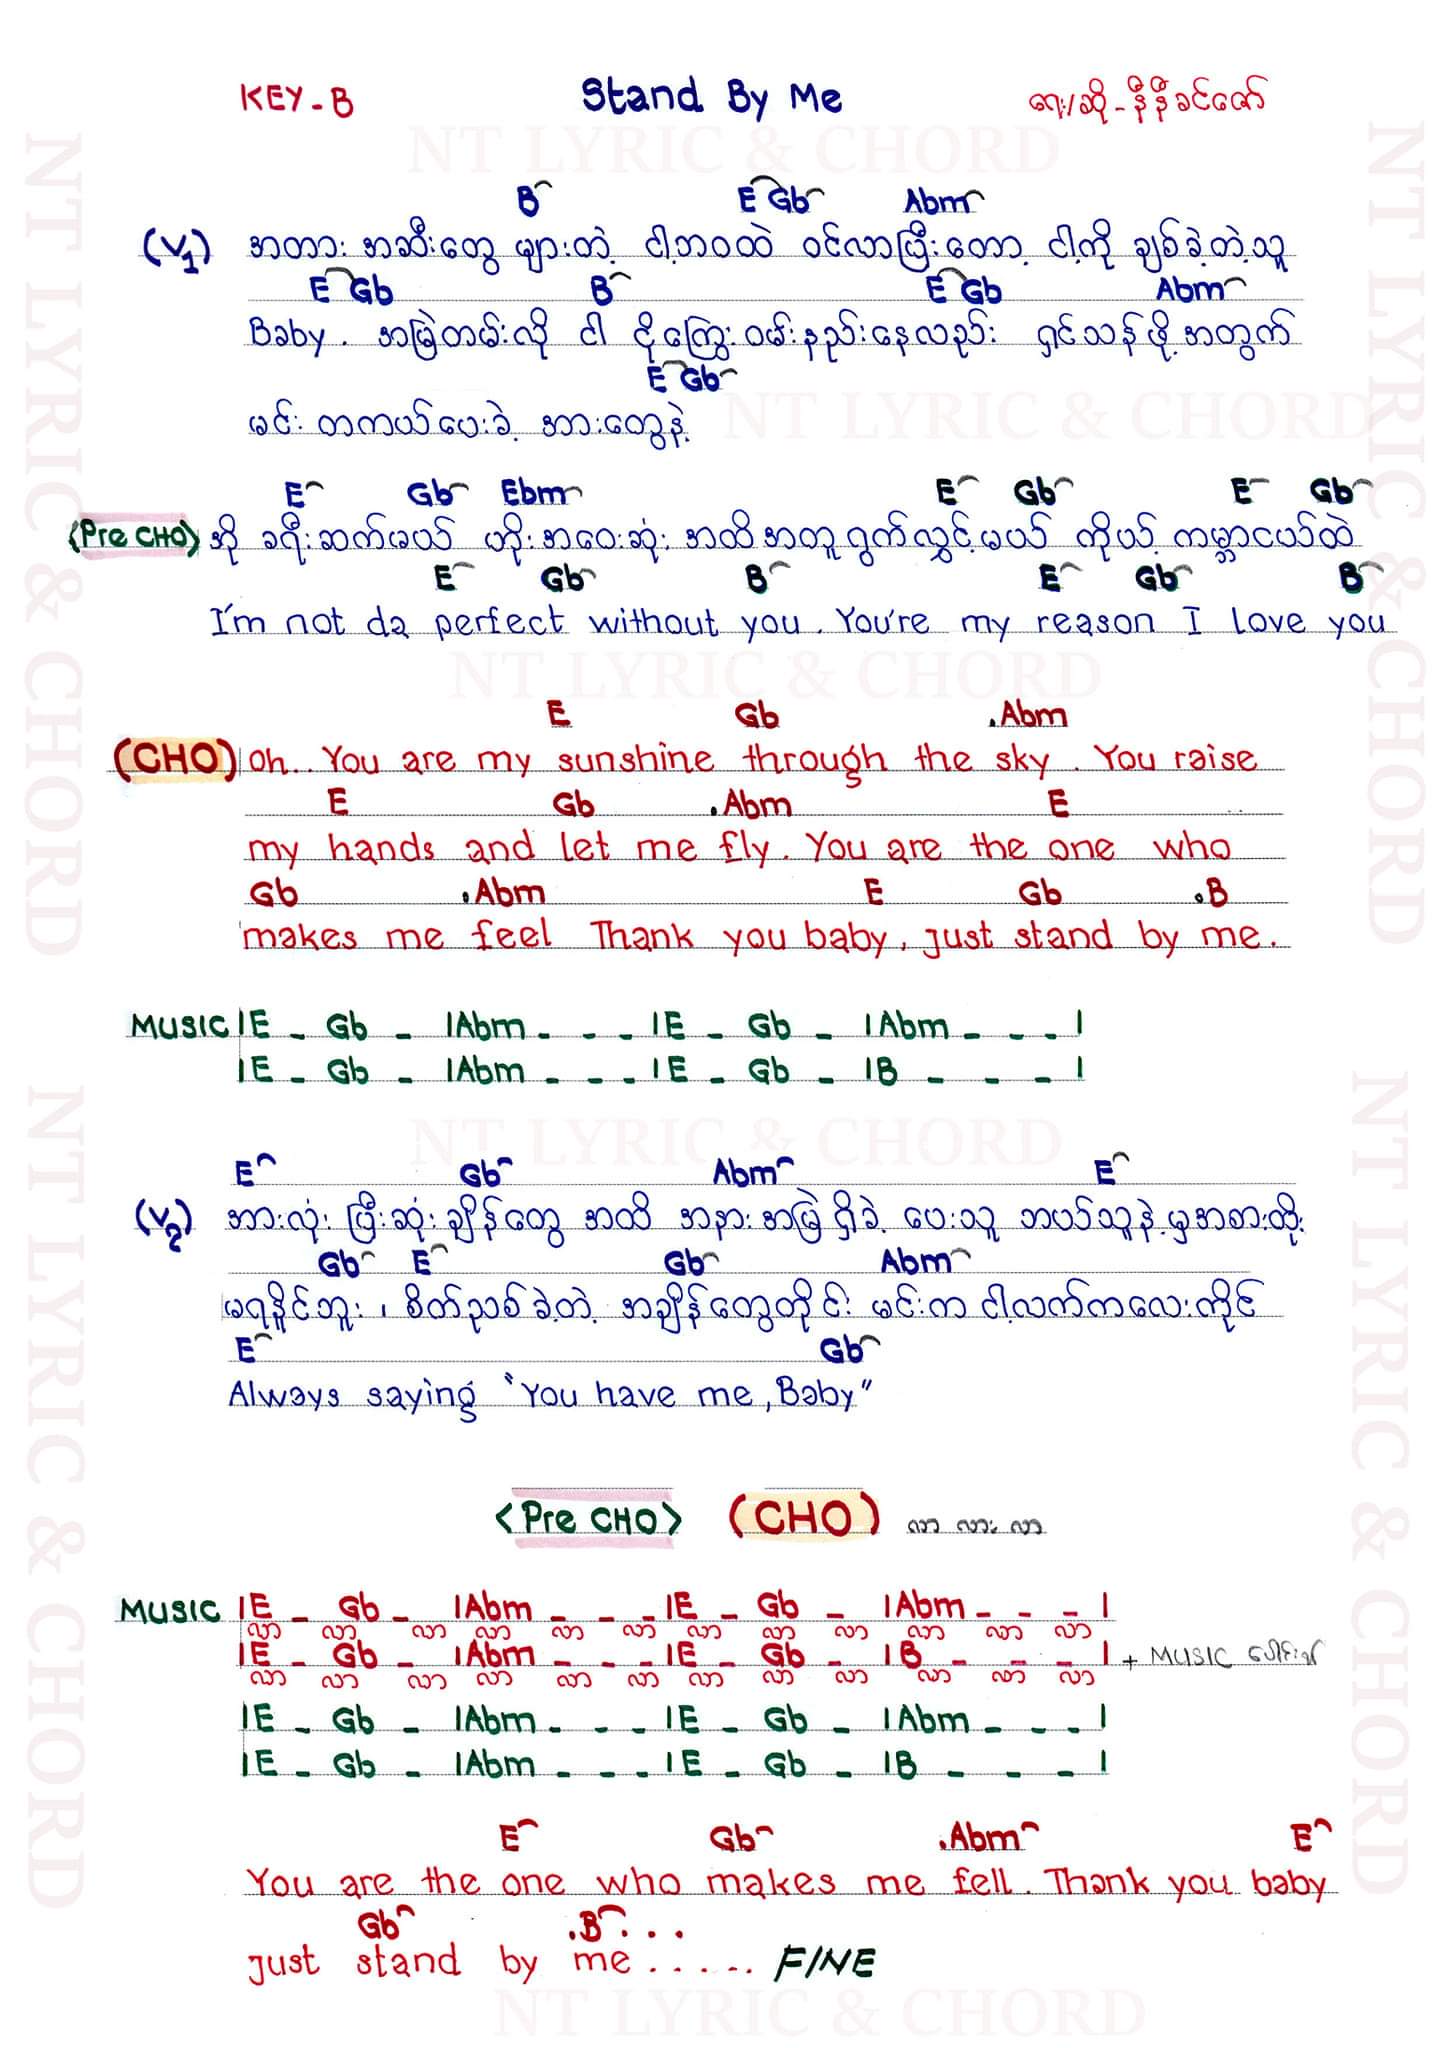 KEY - B Stand By Me ရေး/ဆို - နီနီခင်ဇော်
B E Gb Abm
(V1) အတား အဆီးတွေ များတဲ့ ငါ့ဘဝထဲ ဝင်လာပြီးတော့ ငါ့ကို ချစ်ခဲ့တဲ့သူ
E Gb B E Gb Abm
Baby . အမြဲတမ်းလို ငါ ငိုကြွေးဝမ်းနည်းနေလည်း ရှင်သန်ဖို့အတွက်
E Gb
မင်း တကယ်ပေးခဲ့ အားတွေနဲ့
E Gb Ebm E Gb E Gb
<Pre CHO> အို ခရီးဆက်မယ် ဟိုးအဝေးဆုံး အထိအတူရွက်လွှင့်မယ် ကိုယ့် ကမ္ဘာငယ်ထဲ
E Gb B E Gb B
I'm not da perfect without you . You're my reason I love you
E Gb .Abm
(CHO) Oh.. You are my sunshine through the sky . You raise
E Gb .Abm E
my hands and let me fly . You are the one who
Gb .Abm E Gb .B
makes me feel Thank you baby , just stand by me .
MUSIC |E - Gb - |Abm - - - |E - Gb - |Abm - - - |
|E - Gb - |Abm - - - |E - Gb - |B - - - |
E Gb Abm E
(V2) အားလုံး ပြီးဆုံးချိန်တွေ အထိ အနားအမြဲရှိခဲ့ ပေးသူ ဘယ်သူနဲ့မှအစားထိုး
Gb E Gb Abm
မရနိုင်ဘူး ၊ စိတ်ညစ်ခဲ့တဲ့ အချိန်တွေတိုင်း မင်းက ငါ့လက်ကလေးကိုင်
E Gb
Always saying "You have me, Baby"
<Pre CHO> (CHO) လာ လား လာ
MUSIC |E - Gb - |Abm - - - |E - Gb - |Abm - - - |
လာ လာ လာ လာ လာ လာ လာ လာ လာ လာ လာ လာ
|E - Gb - |Abm - - - |E - Gb - |B - - - | + MUSIC
လာ လာ လာ လာ လာ လာ လာ လာ လာ လာ လာ လာ
|E - Gb - |Abm - - - |E - Gb - |Abm - - - |
|E - Gb - |Abm - - - |E - Gb - |B - - - |
E Gb .Abm E
You are the one who makes me fell . Thank you baby
Gb .B . . .
just stand by me ..... FINE
NT LYRIC & CHORD
NT LYRIC & CHORD
NT LYRIC & CHORD
NT LYRIC & CHORD
NT LYRIC & CHORD
NT LYRIC & CHORD
NT LYRIC & CHORD
NT LYRIC & CHORD
NT LYRIC & CHORD